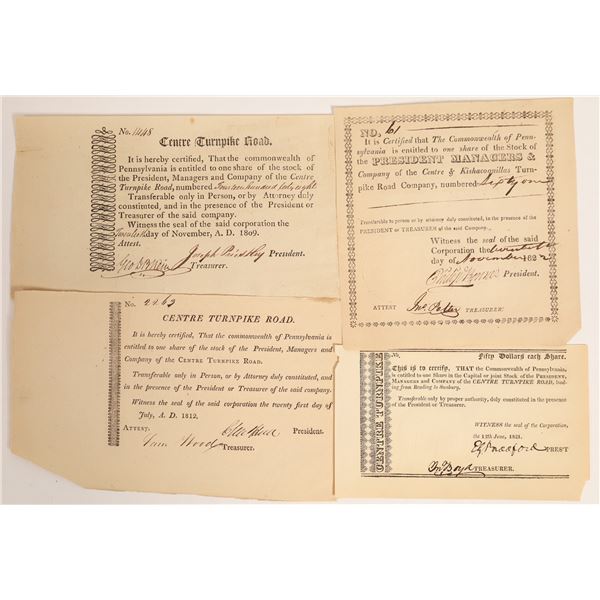 No. 1448
Centre Turnpike Road.
It is hereby certified, That the commonwealth of
Pennsylvania is entitled to one share of the stock of
the President, Managers and Company of the Centre
Turnpike Road, numbered Fourteen hundred forty eight
Transferable only in Person, or by Attorney duly
constituted, and in the presence of the President or
Treasurer of the said company.
Witness the seal of the said corporation the
Twentieth day of November, A. D. 1809.
Attest.
Joseph Priestley President.
Treasurer.
NO. 61
It is Certified that The Commonwealth of Penn-
sylvania is entitled to one share of the Stock of the
PRESIDENT MANAGERS &
Company of the Centre & Kishacoquillas Turn-
pike Road Company, numbered Sixty one
Transferable in person or by attorney duly constituted, in the presence of the
PRESIDENT or TREASURER of the said Company.
Witness the seal of the said
Corporation the
day of November 182
President.
ATTEST
TREASURER.
No. 2263
CENTRE TURNPIKE ROAD.
It is hereby certified, That the commonwealth of Pennsylvania is
entitled to one share of the stock of the President, Managers and
Company of the CENTRE TURNPIKE ROAD.
Transferable only in Person, or by Attorney duly constituted, and
in the presence of the President or Treasurer of the said company.
Witness the seal of the said corporation the twenty first day of
July, A. D. 1812.
ATTEST.
President.
Wood Treasurer.
CENTRE TURNPIKE
No.
Fifty Dollars each Share.
This is to certify, THAT the Commonwealth of Pennsylvania,
is entitled to one Share in the Capital or joint Stock of the PRESIDENT,
MANAGERS and Company of the CENTRE TURNPIKE ROAD, lead-
ing from Reading to Sunbury.
Transferable only by proper authority, duly constituted in the presence
of the President or Treasurer.
WITNESS the seal of the Corporation,
the 12th June, 1821.
PREST
Jno Boyd TREASURER.